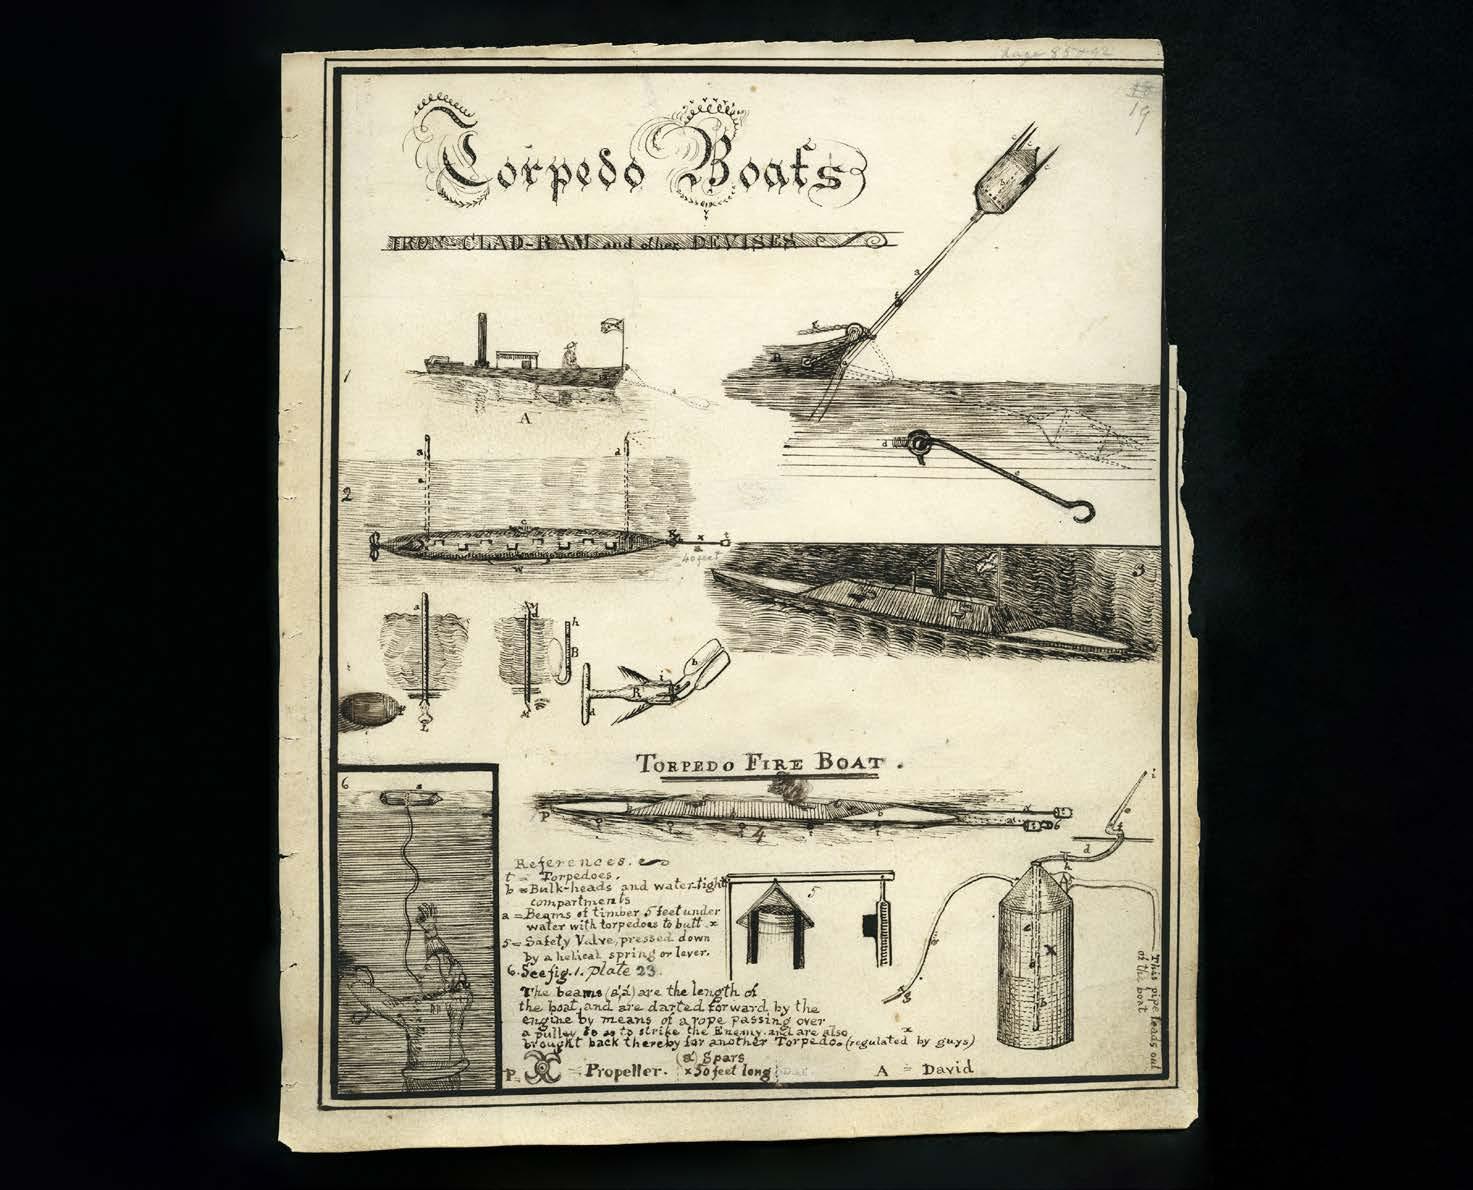 Page 85 & 92
19
Torpedo Boats
IRON-CLAD-RAM and other DEVISES
1
A
2
40 feet
3
TORPEDO FIRE BOAT.
4
6
References.
t = Torpedoes.
b = Bulk-heads and water-tight
compartments
a = Beams of timber 5 feet under
water with torpedoes to butt. x
5 = Safety Valve, pressed down
by a helical spring or lever.
6. See fig. 1. plate 23.
The beams (a'a') are the length of
the boat, and are darted forward by the
engine by means of a rope passing over
a pulley so as to strike the Enemy and are also
brought back thereby for another Torpedo. (regulated by guys) x
P = Propeller.
(a) Spars
x 50 feet long
A = David
5
This pipe leads out
of the boat